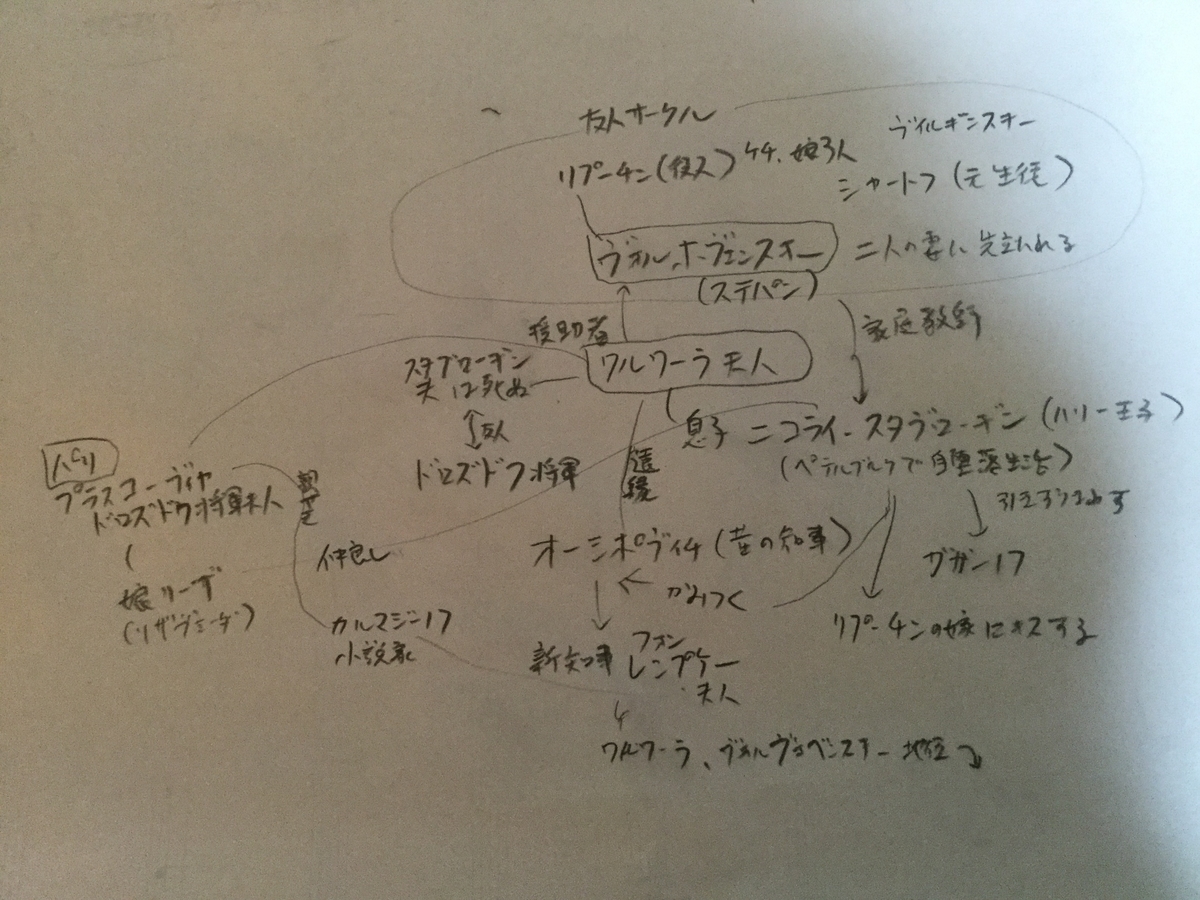 友人サークル
ヴィルギンスキー
リプーチン(役人) ケチ、娘3人
シャートフ(元生徒)
ヴェルホーヴェンスキー 二人の妻に先立たれる
(ステパン)
援助者
家庭教師
ワルワーラ夫人
スタブローギン
夫は死ぬ
友人
ドロズドフ将軍
息子 ニコライ・スタヴローギン(ハリー王子)
(ペテルブルクで自堕落生活)
遠縁
引きずりまわす
ガガーノフ
パリ
プラスコーヴィヤ
ドロズドフ将軍夫人
親せき
娘リーザ
(リザヴェータ)
仲良し
カルマジーノフ
小説家
オーシポヴィチ(昔の知事)
かみつく
リプーチンの嫁にキスする
新知事 フォン
レンプケー
夫人
ワルワーラ、ヴェルホヴェンスキー 地位